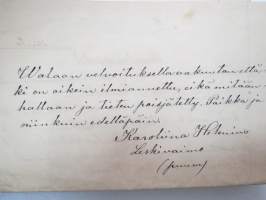 Walaan velvoituksella vakuutan että
ki on oikein ilmiannettu, eikä mitään
hallaan ja tieten poisjätetty. Paikka ja
niinkuin edeltäpäin.
Karoliina Helmino
Leskivaimo